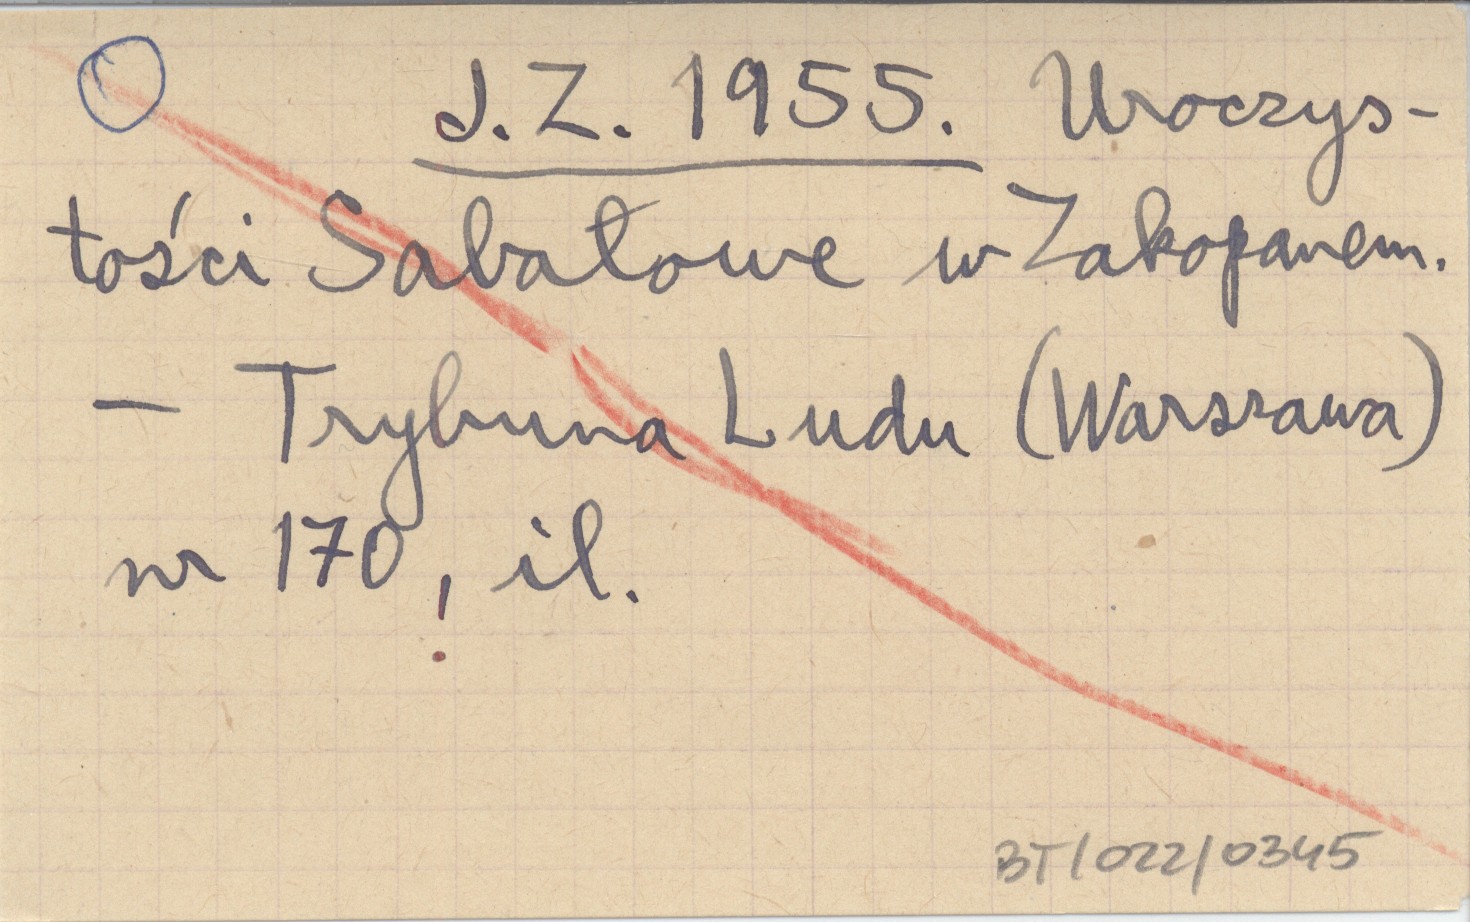 J.Z. 1955. Uroczys-
tości Sabałowe w Zakopanem.
– Trybuna Ludu (Warszawa)
nr 170, il.
BT/022/0345